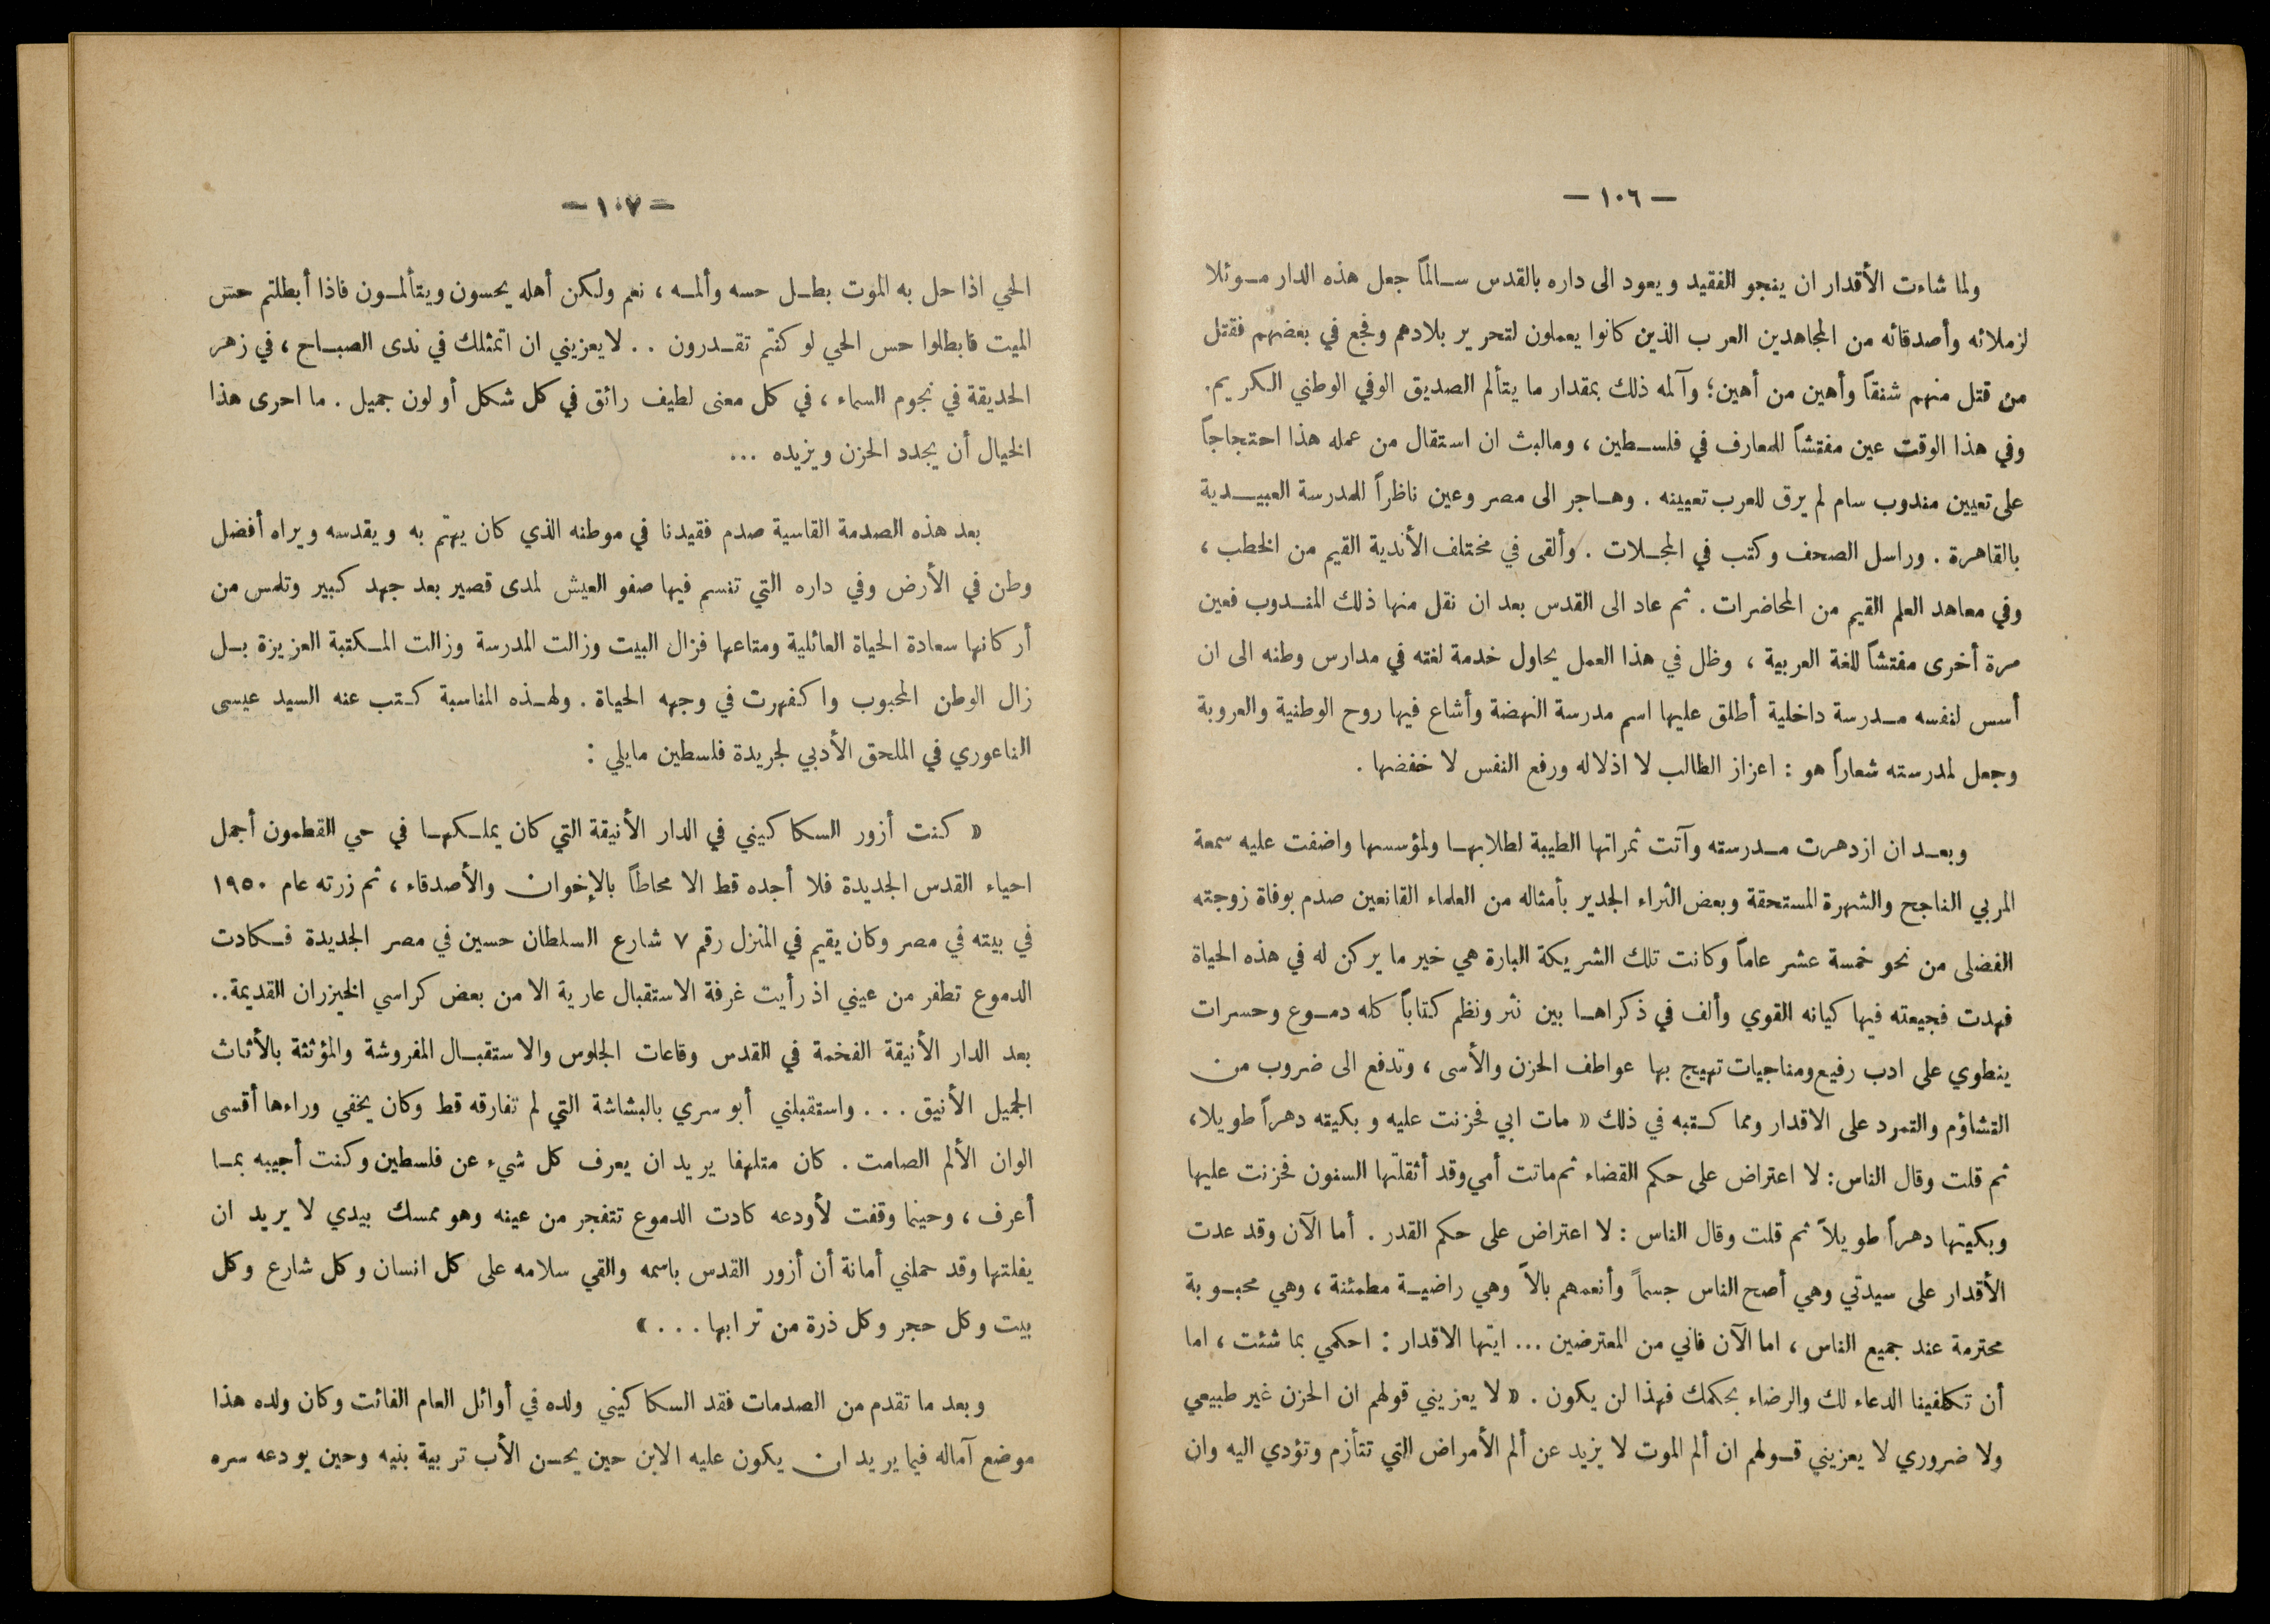 — ١٠٦ —
ولما شاءت الأقدار ان ينجو الفقيد ويعود الى داره بالقدس سالماً جعل هذه الدار موئلا
لزملائه وأصدقائه من المجاهدين العرب الذين كانوا يعملون لتحرير بلادهم وفجع في بعضهم فقتل
من قتل منهم شنقاً وأهين من أهين؛ وآلمه ذلك بمقدار ما يتألم الصديق الوفي الوطني الكريم.
وفي هذا الوقت عين مفتشاً للمعارف في فلسطين ، ومالبث ان استقال من عمله هذا احتجاجاً
على تعيين مندوب سام لم يرق للعرب تعيينه . وهاجر الى مصر وعين ناظراً للمدرسة العبيدية
بالقاهرة . وراسل الصحف وكتب في المجلات . وألقى في مختلف الأندية القيم من الخطب ،
وفي معاهد العلم القيم من المحاضرات . ثم عاد الى القدس بعد ان نقل منها ذلك المندوب فعين
مرة أخرى مفتشاً للغة العربية ، وظل في هذا العمل يحاول خدمة لغته في مدارس وطنه الى ان
أسس لنفسه مدرسة داخلية أطلق عليها اسم مدرسة النهضة وأشاع فيها روح الوطنية والعروبة
وجعل لمدرسته شعاراً هو : اعزاز الطالب لا اذلاله ورفع النفس لا خفضها .
وبعد ان ازدهرت مدرسته وآتت ثمراتها الطيبة لطلابها ولمؤسسها واضفت عليه سمعة
المربي الناجح والشهرة المستحقة وبعض الثراء الجدير بأمثاله من العلماء القانعين صدم بوفاة زوجته
الفضلى من نحو خمسة عشر عاماً وكانت تلك الشريكة البارة هي خير ما يركن له في هذه الحياة
فهدت فجيعته فيها كيانه القوي وألف في ذكراها بين نثر ونظم كتاباً كله دموع وحسرات
ينطوي على ادب رفيع ومناجيات تهيج بها عواطف الحزن والأسى ، وتدفع الى ضروب من
التشاؤم والتمرد على الاقدار ومما كتبه في ذلك « مات ابي فحزنت عليه وبكيته دهراً طويلا،
ثم قلت وقال الناس: لا اعتراض على حكم القضاء ثم ماتت أمي وقد أثقلتها السنون فحزنت عليها
وبكيتها دهراً طويلاً ثم قلت وقال الناس : لا اعتراض على حكم القدر . أما الآن وقد عدت
الأقدار على سيدتي وهي أصح الناس جسماً وأنعمهم بالاً وهي راضية مطمئنة ، وهي محبوبة
محترمة عند جميع الناس ، اما الآن فاني من المعترضين ... ايتها الاقدار : احكمي بما شئت ، اما
أن تكلفينا الدعاء لك والرضاء بحكمك فهذا لن يكون . « لا يعزيني قولهم ان الحزن غير طبيعي
ولا ضروري لا يعزيني قولهم ان ألم الموت لا يزيد عن ألم الأمراض التي تتأزم وتؤدي اليه وان
— ١٠٧ —
الحي اذا حل به الموت بطل حسه وألمه ، نعم ولكن أهله يحسون ويتألمون فاذا أبطلتم حس
الميت فابطلوا حس الحي لو كنتم تقدرون . . لا يعزيني ان اتمثلك في ندى الصباح ، في زهر
الحديقة في نجوم السماء ، في كل معنى لطيف رائق في كل شكل أو لون جميل . ما احرى هذا
الخيال أن يجدد الحزن ويزيده ...
بعد هذه الصدمة القاسية صدم فقيدنا في موطنه الذي كان يهتم به ويقدسه ويراه أفضل
وطن في الأرض وفي داره التي تنسم فيها صفو العيش لمدى قصير بعد جهد كبير وتلمس من
أركانها سعادة الحياة العائلية ومتاعها فزال البيت وزالت المدرسة وزالت المكتبة العزيزة بل
زال الوطن المحبوب واكفهرت في وجهه الحياة . ولهذه المناسبة كتب عنه السيد عيسى
الناعوري في الملحق الأدبي لجريدة فلسطين مايلي :
« كنت أزور السكاكيني في الدار الأنيقة التي كان يملكها في حي القطمون أجمل
احياء القدس الجديدة فلا أجده قط الا محاطاً بالإخوان والأصدقاء ، ثم زرته عام ١٩٥٠
في بيته في مصر وكان يقيم في المنزل رقم ٧ شارع السلطان حسين في مصر الجديدة فكادت
الدموع تطفر من عيني اذ رأيت غرفة الاستقبال عارية الا من بعض كراسي الخيزران القديمة..
بعد الدار الأنيقة الفخمة في القدس وقاعات الجلوس والاستقبال المفروشة والمؤثثة بالأثاث
الجميل الأنيق . . . واستقبلني أبو سري بالبشاشة التي لم تفارقه قط وكان يخفي وراءها أقسى
الوان الألم الصامت . كان متلهفا يريد ان يعرف كل شيء عن فلسطين وكنت أجيبه بما
أعرف ، وحينما وقفت لأودعه كادت الدموع تتفجر من عينه وهو ممسك بيدي لا يريد ان
يفلتها وقد حملني أمانة أن أزور القدس باسمه والقي سلامه على كل انسان وكل شارع وكل
بيت وكل حجر وكل ذرة من ترابها . . . »
وبعد ما تقدم من الصدمات فقد السكاكيني ولده في أوائل العام الفائت وكان ولده هذا
موضع آماله فيما يريد ان يكون عليه الابن حين يحسن الأب تربية بنيه وحين يودعه سره